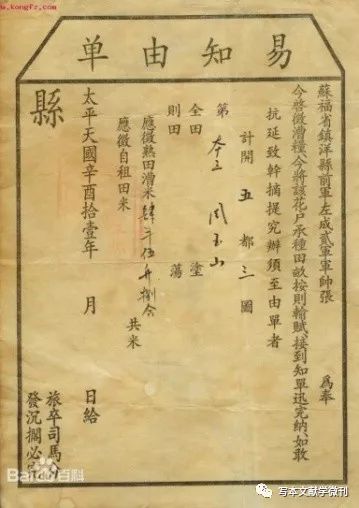 www.kongfz.com
易知由单
蘇福省鎮洋縣前軍左成貳軍軍帥張 為奉
今啓徵漕糧今將該花户承種田畝按則輸賦接到知單迅完納如敢
抗延致幹摘提究辦須至由單者
計開 五 都 三 圖
第 本立 周玉山
全田 塗
則田 蕩
應徵熟田漕米肆斗伍升捌合
共米
應徵自租田米
太平天國辛酉拾壹年 月 日給
縣
旅卒司馬
發沉擱必
Baidu百科
写本文献学微刊